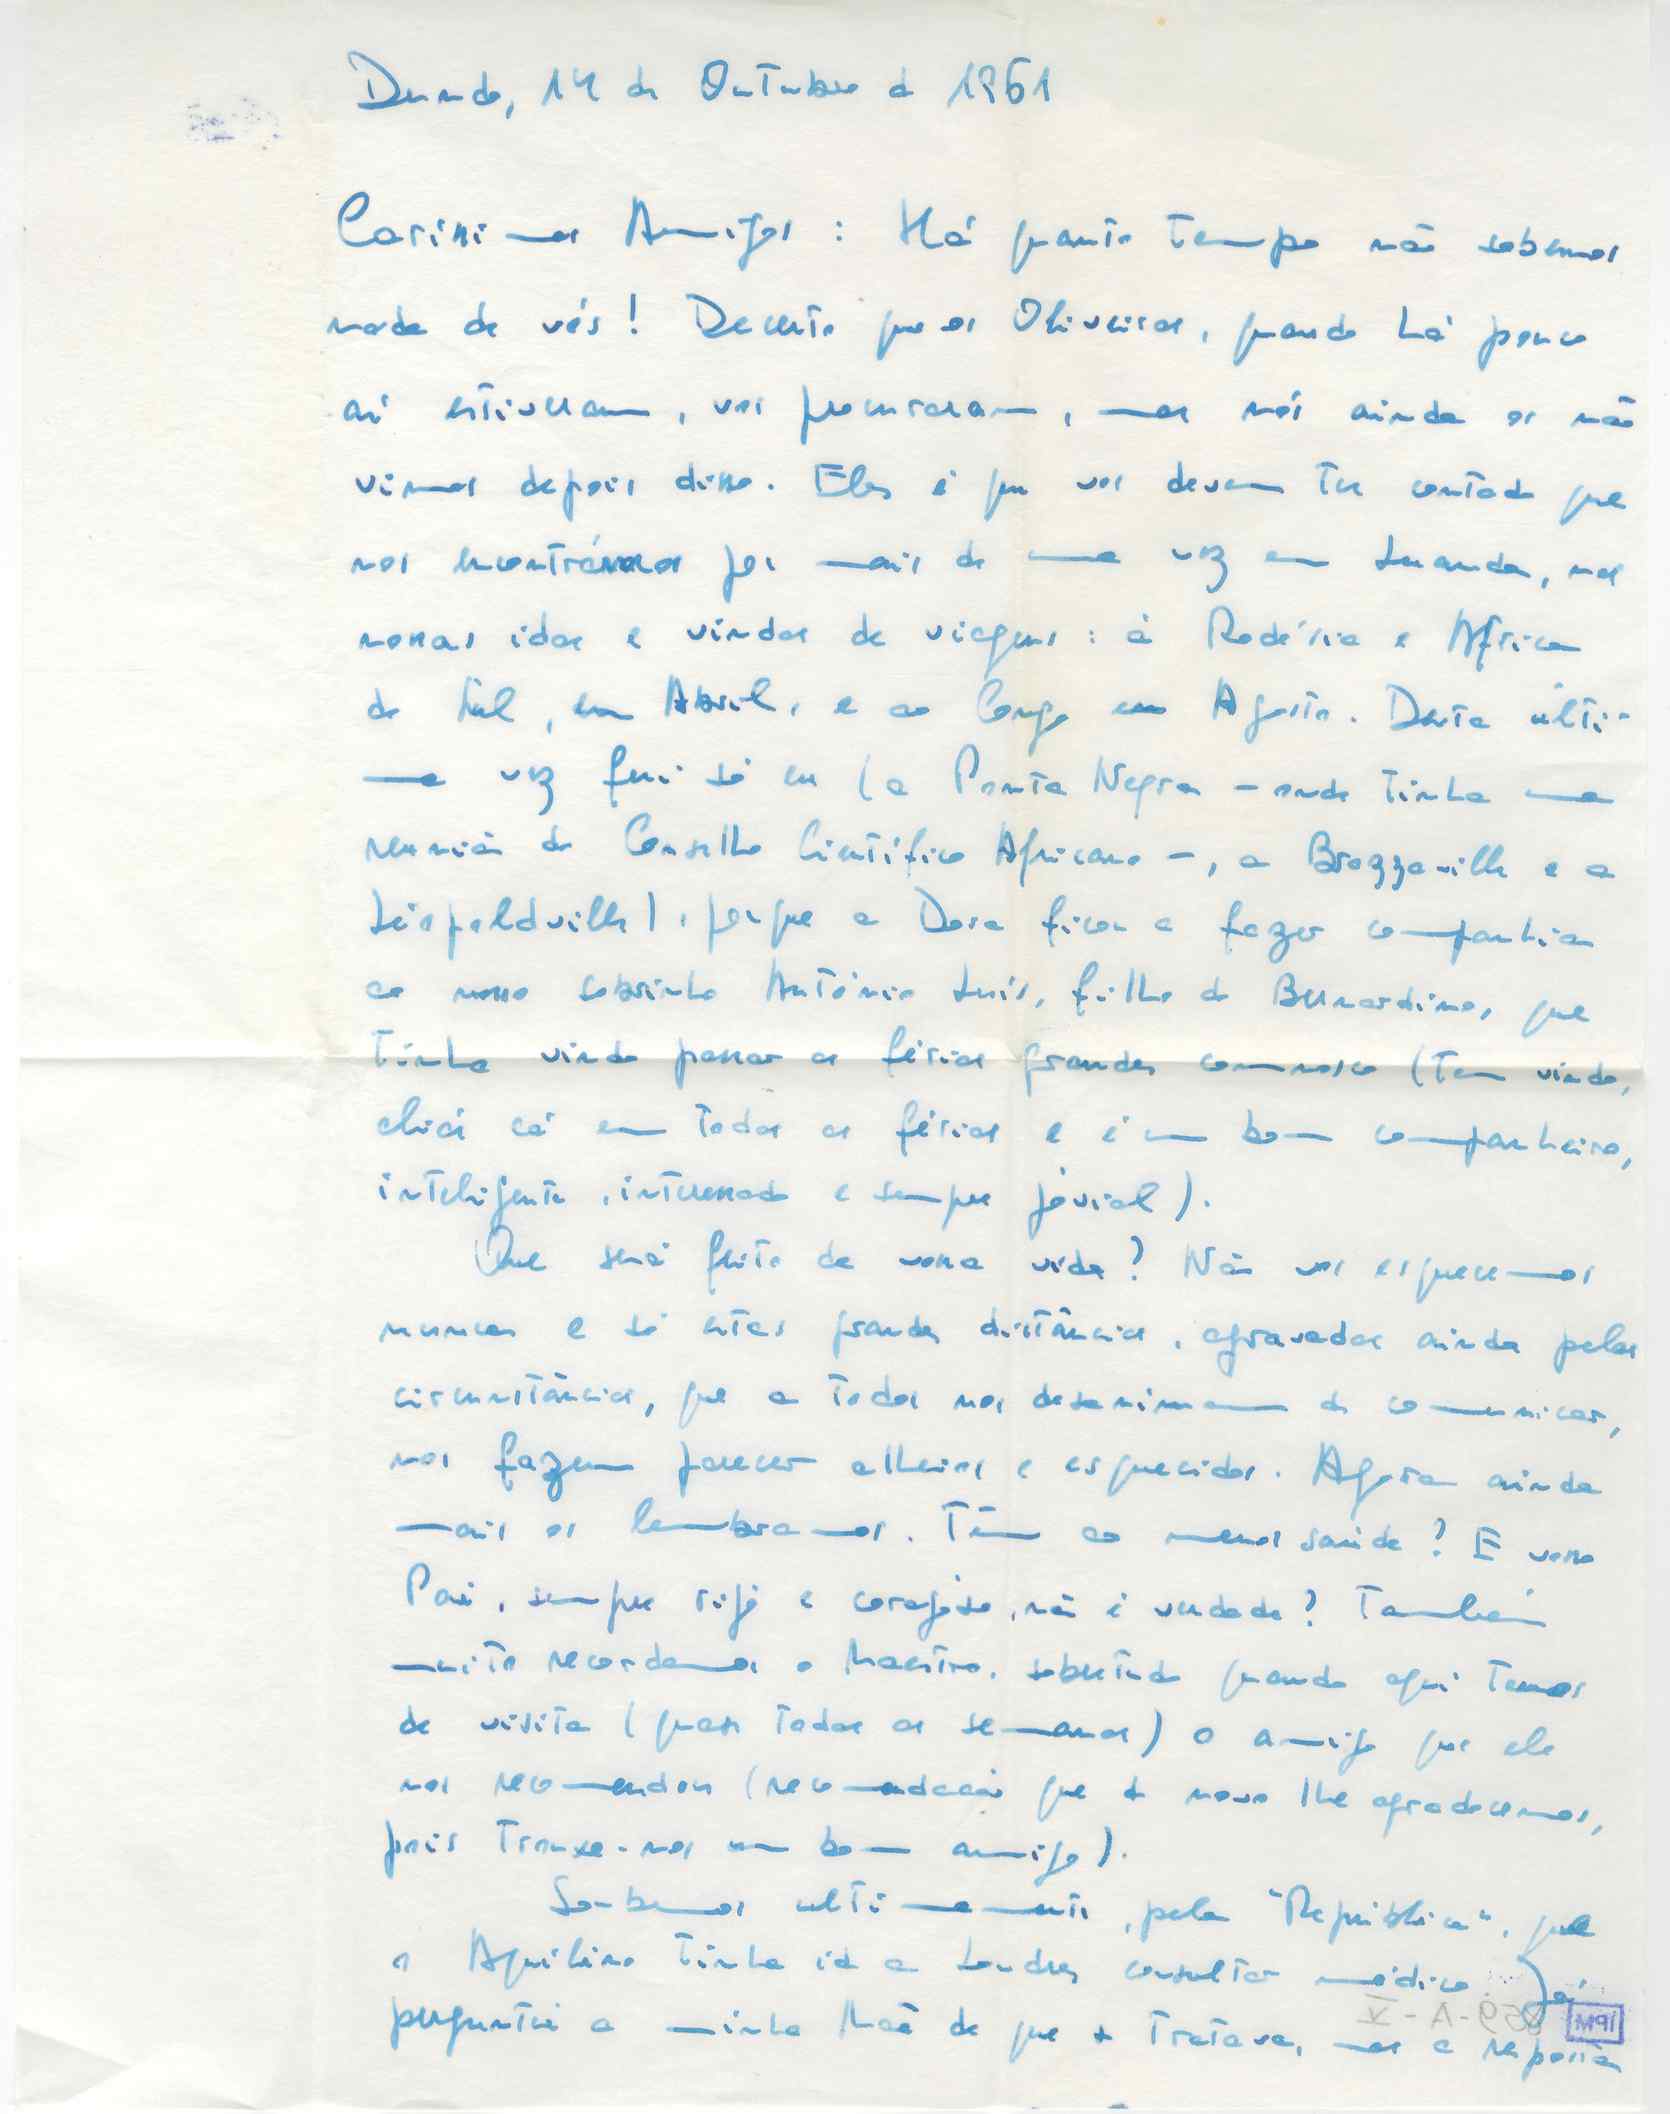 Dundo, 14 de Outubro de 1961
Caríssimos Amigos: Há quanto tempo não sabemos
nada de vós! Decerto que os Oliveiras, quando há pouco
aí estiveram, vos procuraram, mas nós ainda os não
vimos depois disso. Eles é que vos devem ter contado que
nos encontrámos por mais de uma vez em Luanda, nas
nossas idas e vindas de viagens: à Rodésia e África
do Sul, em Abril, e ao Congo em Agosto. Desta últi-
ma vez fui só eu (a Ponta Negra - onde tinha uma
reunião do Conselho Científico Africano -, a Brazzaville e a
Léopoldville), porque a Dora ficou a fazer companhia
ao nosso sobrinho António Luís, filho do Bernardino, que
tinha vindo passar as férias grandes connosco (tem vindo,
aliás cá em todas as férias e é um bom companheiro,
inteligente, interessado e sempre jovial).
Que será feito da vossa vida? Não vos esquecemos
nunca e só estas grandes distâncias, agravadas ainda pelas
circunstâncias, que a todos nos desanimam de comunicar,
nos fazem parecer alheios e esquecidos. Agora ainda
mais os lembramos. Têm ao menos saúde? E vosso
Pai, sempre rijo e corajoso, não é verdade? Também
muito recordamos o Maestro, sobretudo quando aqui temos
de visita (quase todas as semanas) o amigo que ele
nos recomendou (recomendação que de novo lhe agradecemos,
pois trouxe-nos um bom amigo).
Soubemos ultimamente, pela "República", que
o Aquilino tinha ido a Londres consultar médico. Já
perguntei a minha Mãe de que se tratava, mas a resposta
859-A-V
IPM